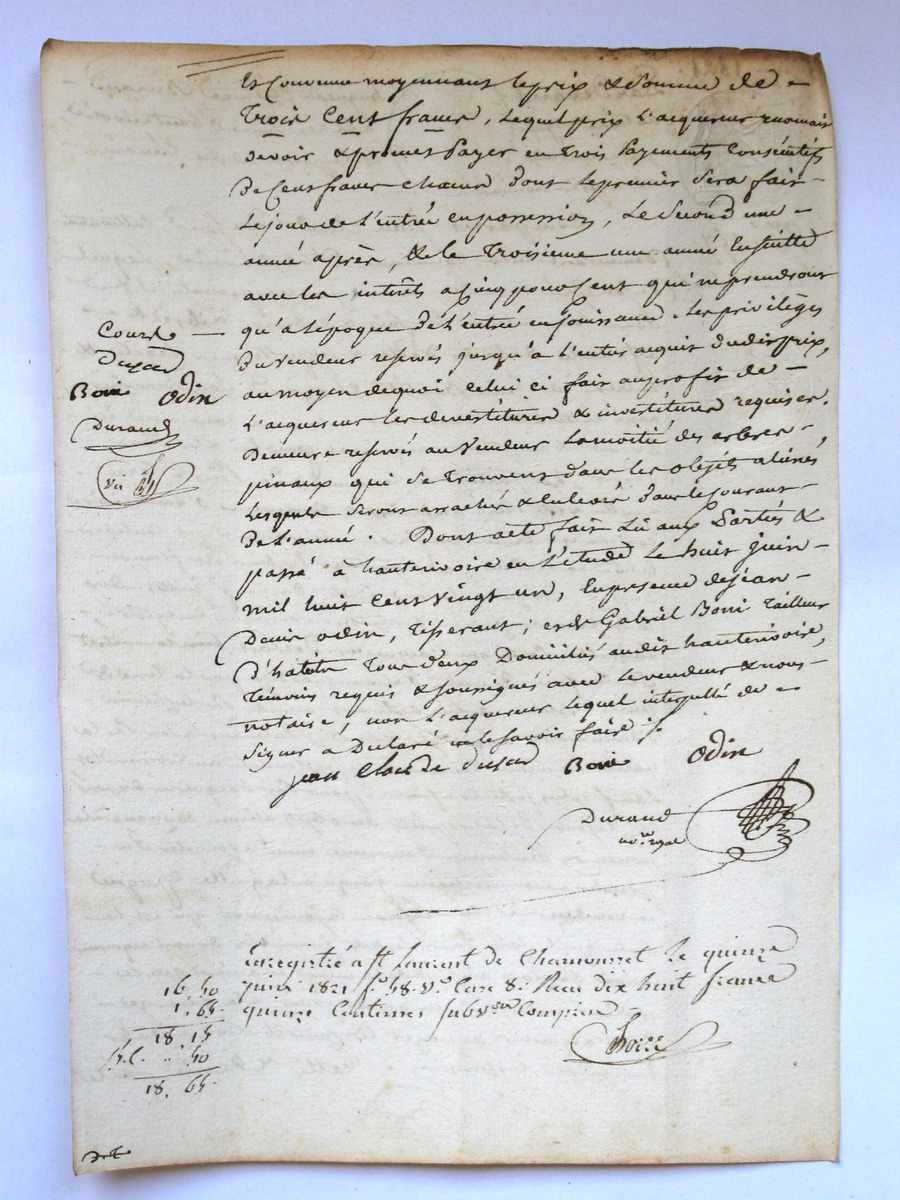 Et convenue moyennant le prix & somme de
Trois Cent francs, lequel prix l'acquereur
devoir & promet payer en trois payements consécutifs
de Cent francs chacun dont le premier sera fait
le jour de l'entrée en possession, le second une
année après, & le troisieme une année ensuitte
avec les intérêts a cinq pour cent qui ne prendront
qu'a l'époque de l'entrée en jouissance. les privilèges
du vendeur reservés jusqu'à l'entier acquit dudit prix,
au moyen de quoi celui ci fait au profit de
l'acquereur les devestitures & investitures requises.
Demeure reservés au vendeur la moitié des arbres
pinaux qui se trouvent dans les objets alienés
lesquels seront arrachés & enlevés dans le courant
de l'année. Dont acte fait lu aux Parties &
passé à hauterivoire en l'étude le huit juin
mil huit cent vingt un, en presence de jean
Denis odin, Tisserant; et de Gabriel Boni Tailleur
d'habits tous deux Domiciliés audit hauterivoire,
temoins requis & soussignés avec le vendeur & nous
notaire, non l'acquereur lequel interpellé de
signer a Declaré ne le savoir faire ./.
Boni Odin
Durand
Vu
jean Claude Boni Odin
Durand
no.re royal
Enregistré a St Laurent de Chamousset le quinze
juin 1821 f.o 48. V.o Case 8. Reçu dix huit francs
quinze centimes subv.on comprise
16. 50
1. 65
18. 15
" 50
18. 65